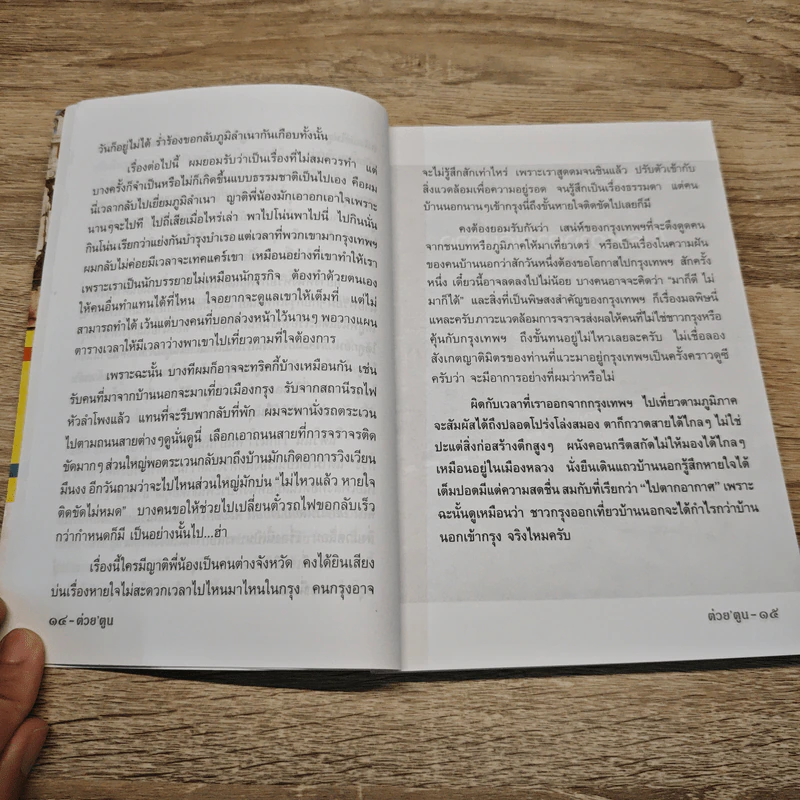 วันก็อยู่ไม่ได้ ร่ำร้องขอกลับภูมิลำเนากันเกือบทั้งนั้น
เรื่องต่อไปนี้ ผมยอมรับว่าเป็นเรื่องที่ไม่สมควรทำ แต่
บางครั้งก็จำเป็นหรือไม่ก็เกิดขึ้นแบบธรรมชาติเป็นไปเอง คือผม
นี่เวลากลับไปเยี่ยมภูมิลำเนา ญาติพี่น้องมักเอาอกเอาใจเพราะ
นานๆจะไปที ไปถี่เสียเมื่อไหร่เล่า พาไปโน่นพาไปนี่ ไปกินนั่น
กินโน่น เรียกว่าแย่งกันบำรุงบำเรอ แต่เวลาที่พวกเขามากรุงเทพฯ
ผมกลับไม่ค่อยมีเวลาจะเทคแคร์เขา เหมือนอย่างที่เขาทำให้เรา
เพราะเราเป็นนักบรรยายไม่เหมือนนักธุรกิจ ต้องทำด้วยตนเอง
ให้คนอื่นทำแทนได้ที่ไหน ใจอยากจะดูแลเขาให้เต็มที่ แต่ไม่
สามารถทำได้ เว้นแต่บางคนที่บอกล่วงหน้าไว้นานๆ พอวางแผน
ตารางเวลาให้มีเวลาว่างพาเขาไปเที่ยวตามที่ใจต้องการ
เพราะฉะนั้น บางทีผมก็อาจจะทริคกี้บ้างเหมือนกัน เช่น
รับคนที่มาจากบ้านนอกจะมาเที่ยวเมืองกรุง รับจากสถานีรถไฟ
หัวลำโพงแล้ว แทนที่จะรีบพากลับที่พัก ผมจะพานั่งรถตระเวน
ไปตามถนนสายต่างๆดูนั่นดูนี่ เลือกเอาถนนสายที่การจราจรติด
ขัดมากๆ ส่วนใหญ่พอตระเวนกลับมาถึงบ้านมักเกิดอาการวิงเวียน
มึนงง อีกวันถามว่าจะไปไหนส่วนใหญ่มักบ่น “ไม่ไหวแล้ว หายใจ
ติดขัดไม่หมด” บางคนขอให้ช่วยไปเปลี่ยนตั๋วรถไฟขอกลับเร็ว
กว่ากำหนดก็มี เป็นอย่างนั้นไป...ฮ่า
เรื่องนี้ใครมีญาติพี่น้องเป็นคนต่างจังหวัด คงได้ยินเสียง
บ่นเรื่องหายใจไม่สะดวกเวลาไปไหนมาไหนในกรุง คนกรุงอาจ
๑๔ - ต่วย'ตูน
จะไม่รู้สึกสักเท่าไหร่ เพราะเราสูดดมจนชินแล้ว ปรับตัวเข้ากับ
สิ่งแวดล้อมเพื่อความอยู่รอด จนรู้สึกเป็นเรื่องธรรมดา แต่คน
บ้านนอกนานๆเข้ากรุงนี่ถึงขั้นหายใจติดขัดไปเลยก็มี
คงต้องยอมรับกันว่า เสน่ห์ของกรุงเทพฯที่จะดึงดูดคน
จากชนบทหรือภูมิภาคให้มาเที่ยวเตร่ หรือเป็นเรื่องในความฝัน
ของคนบ้านนอกว่าสักวันหนึ่งต้องขอโอกาสไปกรุงเทพฯ สักครั้ง
หนึ่ง เดี๋ยวนี้อาจลดลงไปไม่น้อย บางคนอาจจะคิดว่า “มาก็ดี ไม่
มาก็ได้” และสิ่งที่เป็นพิษสงสำคัญของกรุงเทพฯ ก็เรื่องมลพิษนี่
แหละครับ ภาวะแวดล้อมการจราจรส่งผลให้คนที่ไม่ใช่ชาวกรุงหรือ
คุ้นกับกรุงเทพฯ ถึงขั้นทนอยู่ไม่ไหวเลยละครับ ไม่เชื่อลอง
สังเกตญาติมิตรของท่านที่แวะมาอยู่กรุงเทพฯเป็นครั้งคราวดูซี
ครับว่า จะมีอาการอย่างที่ผมว่าหรือไม่
ผิดกับเวลาที่เราออกจากกรุงเทพฯ ไปเที่ยวตามภูมิภาค
จะสัมผัสได้ถึงปลอดโปร่งโล่งสมอง ตาก็กวาดสายได้ไกลๆ ไม่ใช่
ปะแต่สิ่งก่อสร้างตึกสูงๆ ผนังคอนกรีตสกัดไม่ให้มองได้ไกลๆ
เหมือนอยู่ในเมืองหลวง นั่งยืนเดินแถวบ้านนอกรู้สึกหายใจได้
เต็มปอดมีแต่ความสดชื่น สมกับที่เรียกว่า “ไปตากอากาศ” เพราะ
ฉะนั้นดูเหมือนว่า ชาวกรุงออกเที่ยวบ้านนอกจะได้กำไรกว่าบ้าน
นอกเข้ากรุง จริงไหมครับ
ต่วย'ตูน - ๑๕